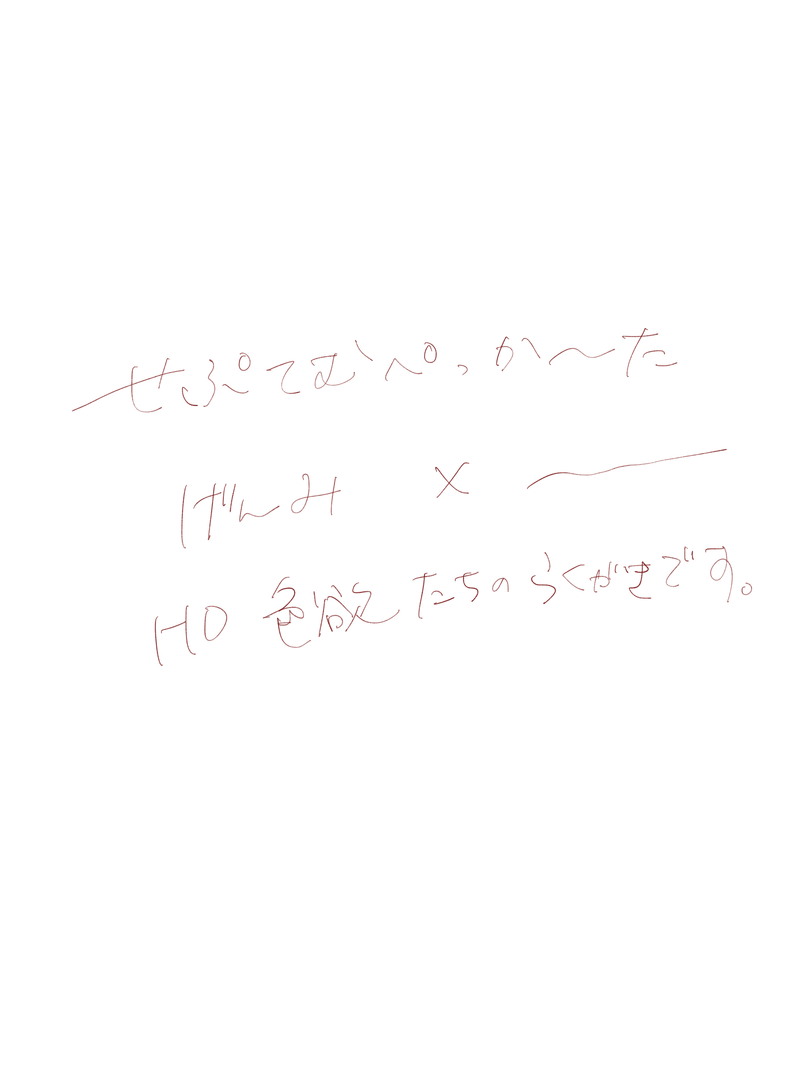 せぷてむぺっか〜た
げんみ ×
HO 色欲たちのらくがきです。